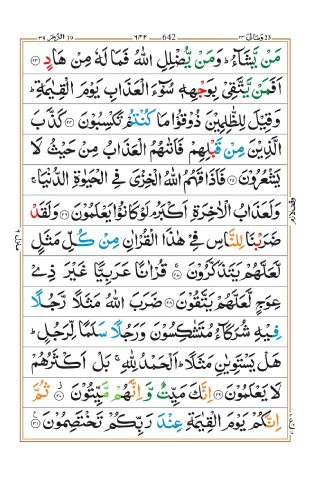 الزمر ٣٩ ٦٤٢ 642 ومالى ٢٣
مَنْ يَّشَآءُ ؕ وَمَنْ يُّضْلِلِ اللّٰهُ فَمَا لَهٗ مِنْ هَادٍ ﴿۲۳﴾
اَفَمَنْ يَّتَّقِىْ بِوَجْهِهٖ سُوْٓءَ الْعَذَابِ يَوْمَ الْقِيٰمَةِ ؕ
وَقِيْلَ لِلظّٰلِمِيْنَ ذُوْقُوْا مَا كُنْتُمْ تَكْسِبُوْنَ ﴿۲۴﴾ كَذَّبَ
الَّذِيْنَ مِنْ قَبْلِهِمْ فَاَتٰٮهُمُ الْعَذَابُ مِنْ حَيْثُ لَا
يَشْعُرُوْنَ ﴿۲۵﴾ فَاَذَاقَهُمُ اللّٰهُ الْخِزْىَ فِى الْحَيٰوةِ الدُّنْيَا ۚ
وَلَعَذَابُ الْاٰخِرَةِ اَكْبَرُ ۘ لَوْ كَانُوْا يَعْلَمُوْنَ ﴿۲۶﴾ وَلَقَدْ
ضَرَبْنَا لِلنَّاسِ فِىْ هٰذَا الْقُرْاٰنِ مِنْ كُلِّ مَثَلٍ
لَّعَلَّهُمْ يَتَذَكَّرُوْنَ ﴿۲۷﴾ قُرْاٰنًا عَرَبِيًّا غَيْرَ ذِىْ
عِوَجٍ لَّعَلَّهُمْ يَتَّقُوْنَ ﴿۲۸﴾ ضَرَبَ اللّٰهُ مَثَلًا رَّجُلًا
فِيْهِ شُرَكَآءُ مُتَشٰكِسُوْنَ وَرَجُلًا سَلَمًا لِّرَجُلٍ ؕ
هَلْ يَسْتَوِيٰنِ مَثَلًا ؕ اَلْحَمْدُ لِلّٰهِ ۚ بَلْ اَكْثَرُهُمْ
لَا يَعْلَمُوْنَ ﴿۲۹﴾ اِنَّكَ مَيِّتٌ وَّاِنَّهُمْ مَّيِّتُوْنَ ﴿۳۰﴾ ثُمَّ
اِنَّكُمْ يَوْمَ الْقِيٰمَةِ عِنْدَ رَبِّكُمْ تَخْتَصِمُوْنَ ﴿۳۱﴾